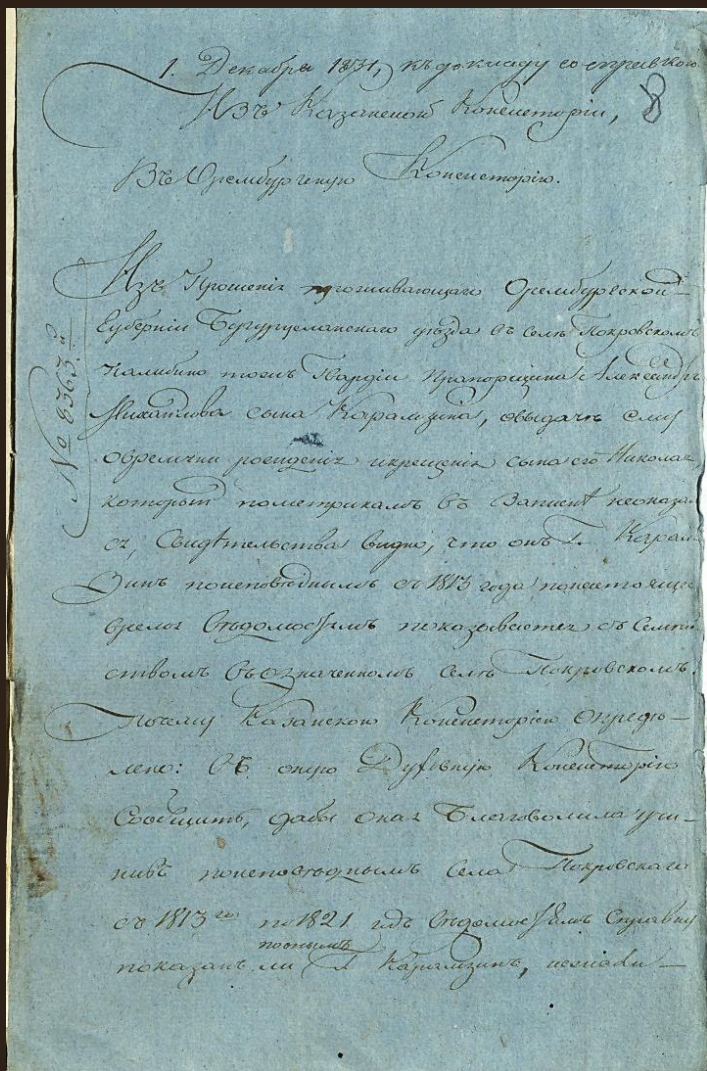 1. Декабря 1831, къ докладу со справкою
8
Изъ Казанской Консисторіи,
Въ Оренбургскую Консисторію.
№ 8363.й
Изъ Прошенія проживающаго Оренбурской
Губерніи Бугурусланскаго уѣзда въ селѣ Покровскомъ
тожъ Гвардіи Прапорщика Александра
Михайлова сына Карамзина, овыдачѣ ему
овремени рожденія икрещенія сына его Николая,
который пометрикамъ въ Записи неоказал
ся, Свидѣтельства видно, что онъ Г. Карам
зинъ поисповѣднымъ съ 1813 года понастоящее
время Вѣдомостямъ показывается съ Семей
ствомъ въ означенномъ Селѣ Покровскомъ.
Почему Казанскою Консисторіею опредѣ–
лено: Въ оную Духовную Консисторію
Сообщить, дабы оная Благоволила учи–
нивъ поисповѣднымъ Села Покровскаго
съ 1813го по 1821 годъ Вѣдомостямъ Справку
поонымъ
показанъ ли Г. Карамзинъ,